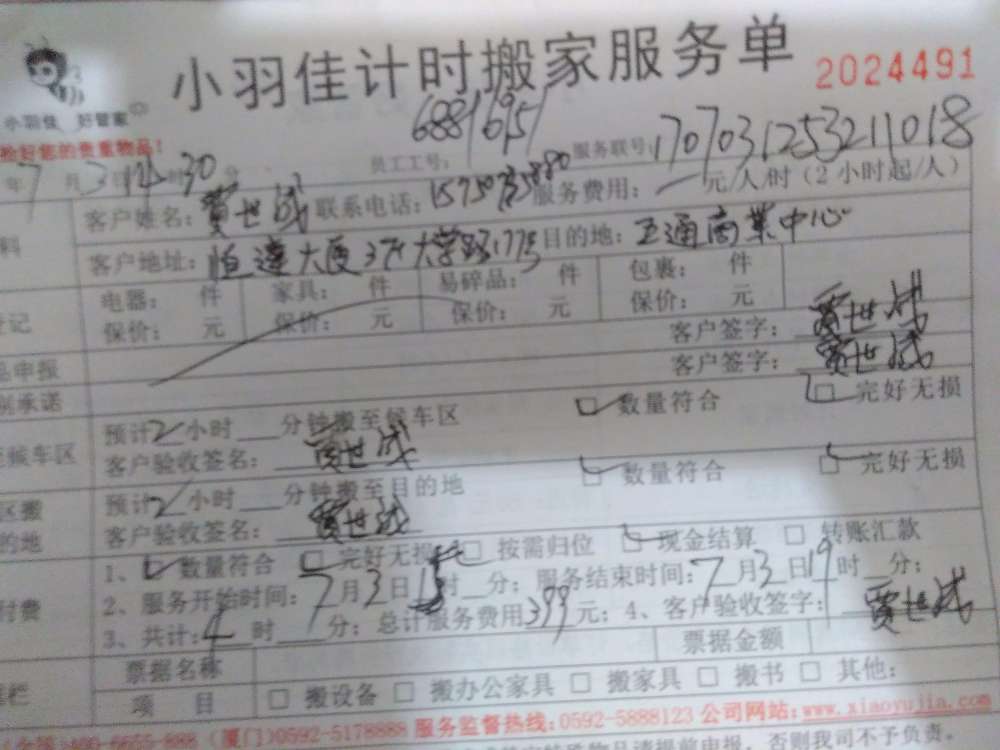 小羽佳计时搬家服务单
2024491
小羽佳 好管家
检好您的贵重物品!
员工工号: 68816951
服务联号: 170703125321018
年7月3日 时30分
客户姓名: 贾世战 联系电话: 服务费用: 元/人/时(2小时起/人)
客户地址: 恒達大厦 大学路177号 目的地: 互通商業中心
电器: 件 家具: 件 易碎品: 件 包裹: 件
保价: 元 保价: 元 保价: 元 保价: 元
登记
客户签字: 贾世战
品申报
客户签字: 贾世战
别承诺
预计2小时 分钟搬至候车区 数量符合 完好无损
候车区
客户验收签名: 贾世战
区搬
预计2小时 分钟搬至目的地 数量符合 完好无损
的地
客户验收签名: 贾世战
1、 数量符合 完好无损 □ 按需归位 现金结算 □ 转账汇款
付费
2、服务开始时间: 7月3日15时 分; 服务结束时间: 7月3日19时 分;
3、共计: 4时 分; 总计服务费用399元; 4、客户验收签字: 贾世战
票据名称 票据金额
项 目 □ 搬设备 □ 搬办公家具 □ 搬家具 □ 搬书 □ 其他:
400-6655-888 (厦门)0592-5178888 服务监督热线:0592-5888123 公司网站:www.xiaoyujia.com
物品请提前申报,否则我司不予负责。